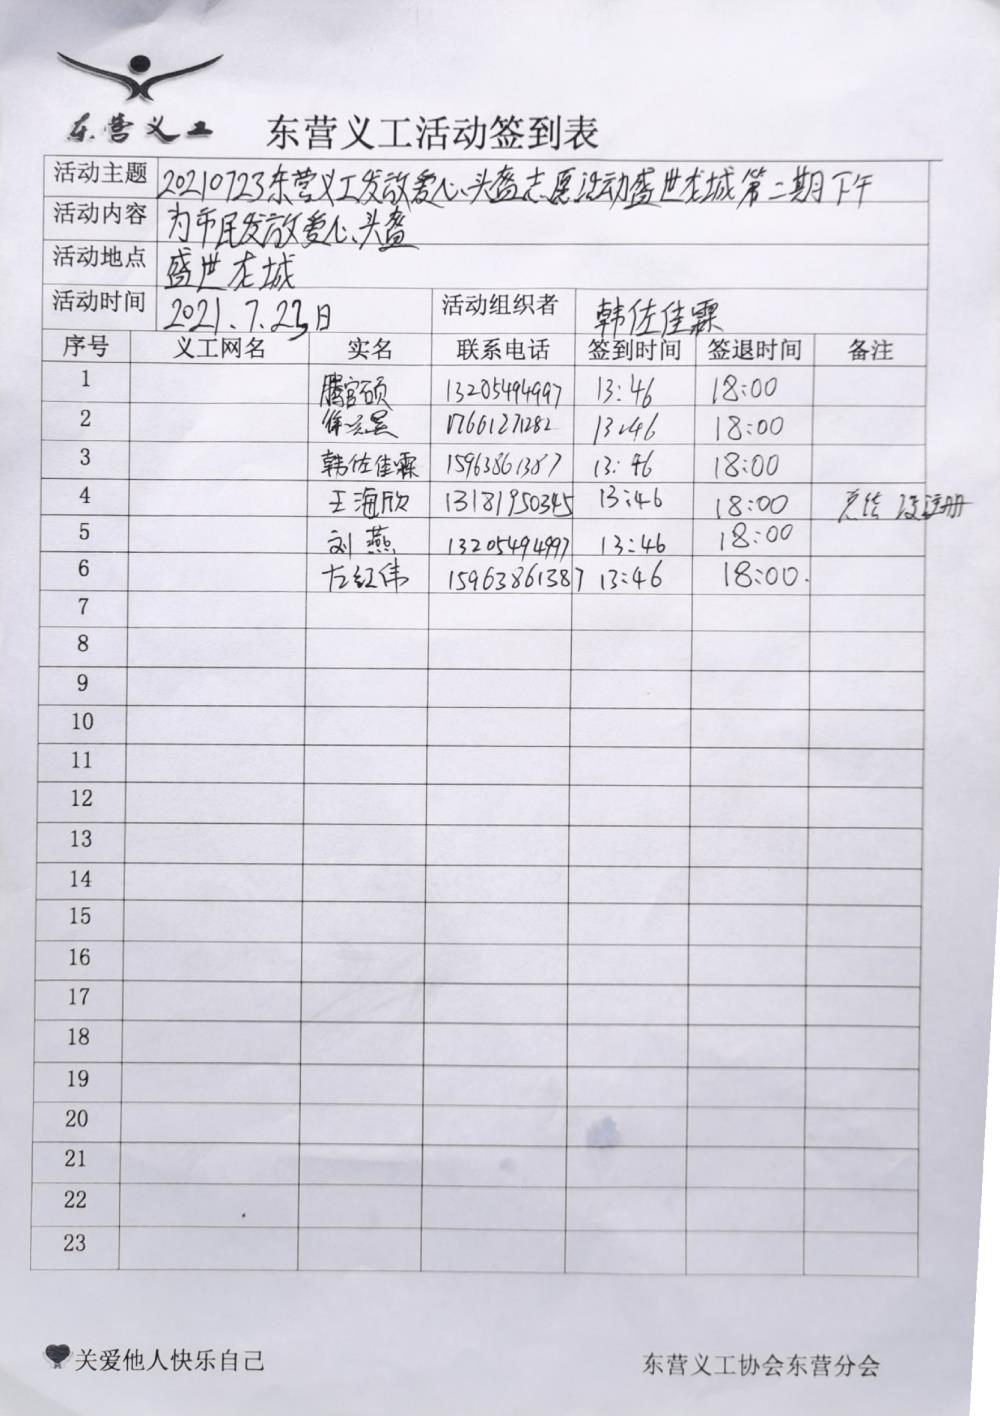 东营义工
东营义工活动签到表
活动主题 20210723东营义工发放爱心头盔志愿活动盛世龙城第二期下午
活动内容 为市民发放爱心头盔
活动地点 盛世龙城
活动时间 2021.7.23日 活动组织者 韩佐佳霖
序号 义工网名 实名 联系电话 签到时间 签退时间 备注
1 腾宫硕 13205494997 13:46 18:00
2 徐昊 17661271282 13:46 18:00
3 韩佐佳霖 15963861387 13:46 18:00
4 王海欣 13181950345 13:46 18:00 总结 没注册
5 刘燕 13205494997 13:46 18:00
6 左红伟 15963861387 13:46 18:00.
7
8
9
10
11
12
13
14
15
16
17
18
19
20
21
22
23
关爱他人快乐自己 东营义工协会东营分会